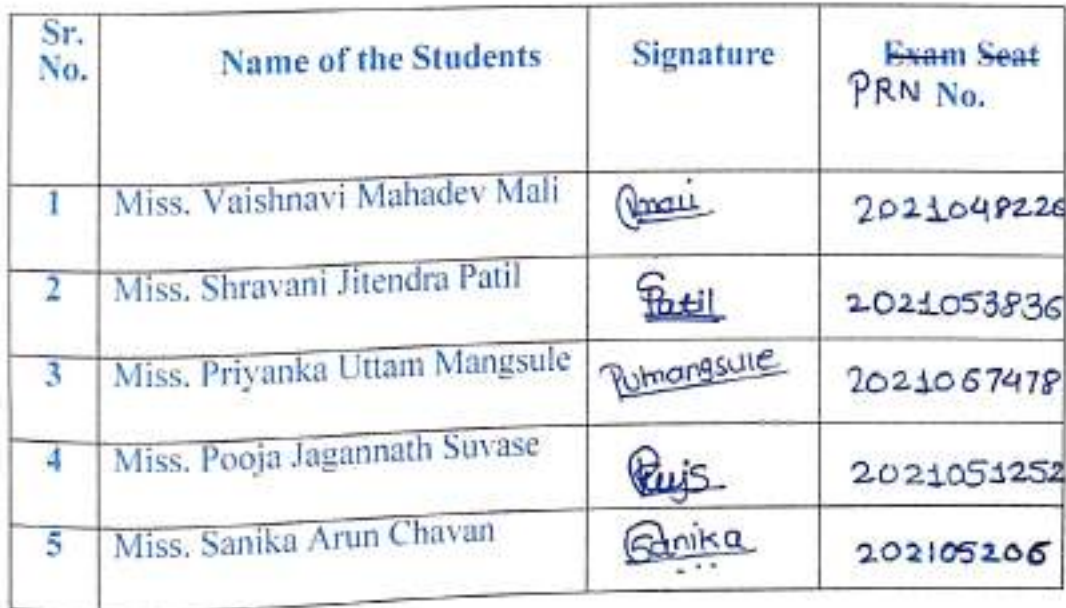 Sr. No. Name of the Students Signature Exam Seat
PRN No.
1 Miss. Vaishnavi Mahadev Mali 2021048226
2 Miss. Shravani Jitendra Patil Patil 2021053836
3 Miss. Priyanka Uttam Mangsule Pumangsule 2021067478
4 Miss. Pooja Jagannath Suvase 2021051252
5 Miss. Sanika Arun Chavan Sanika 202105206